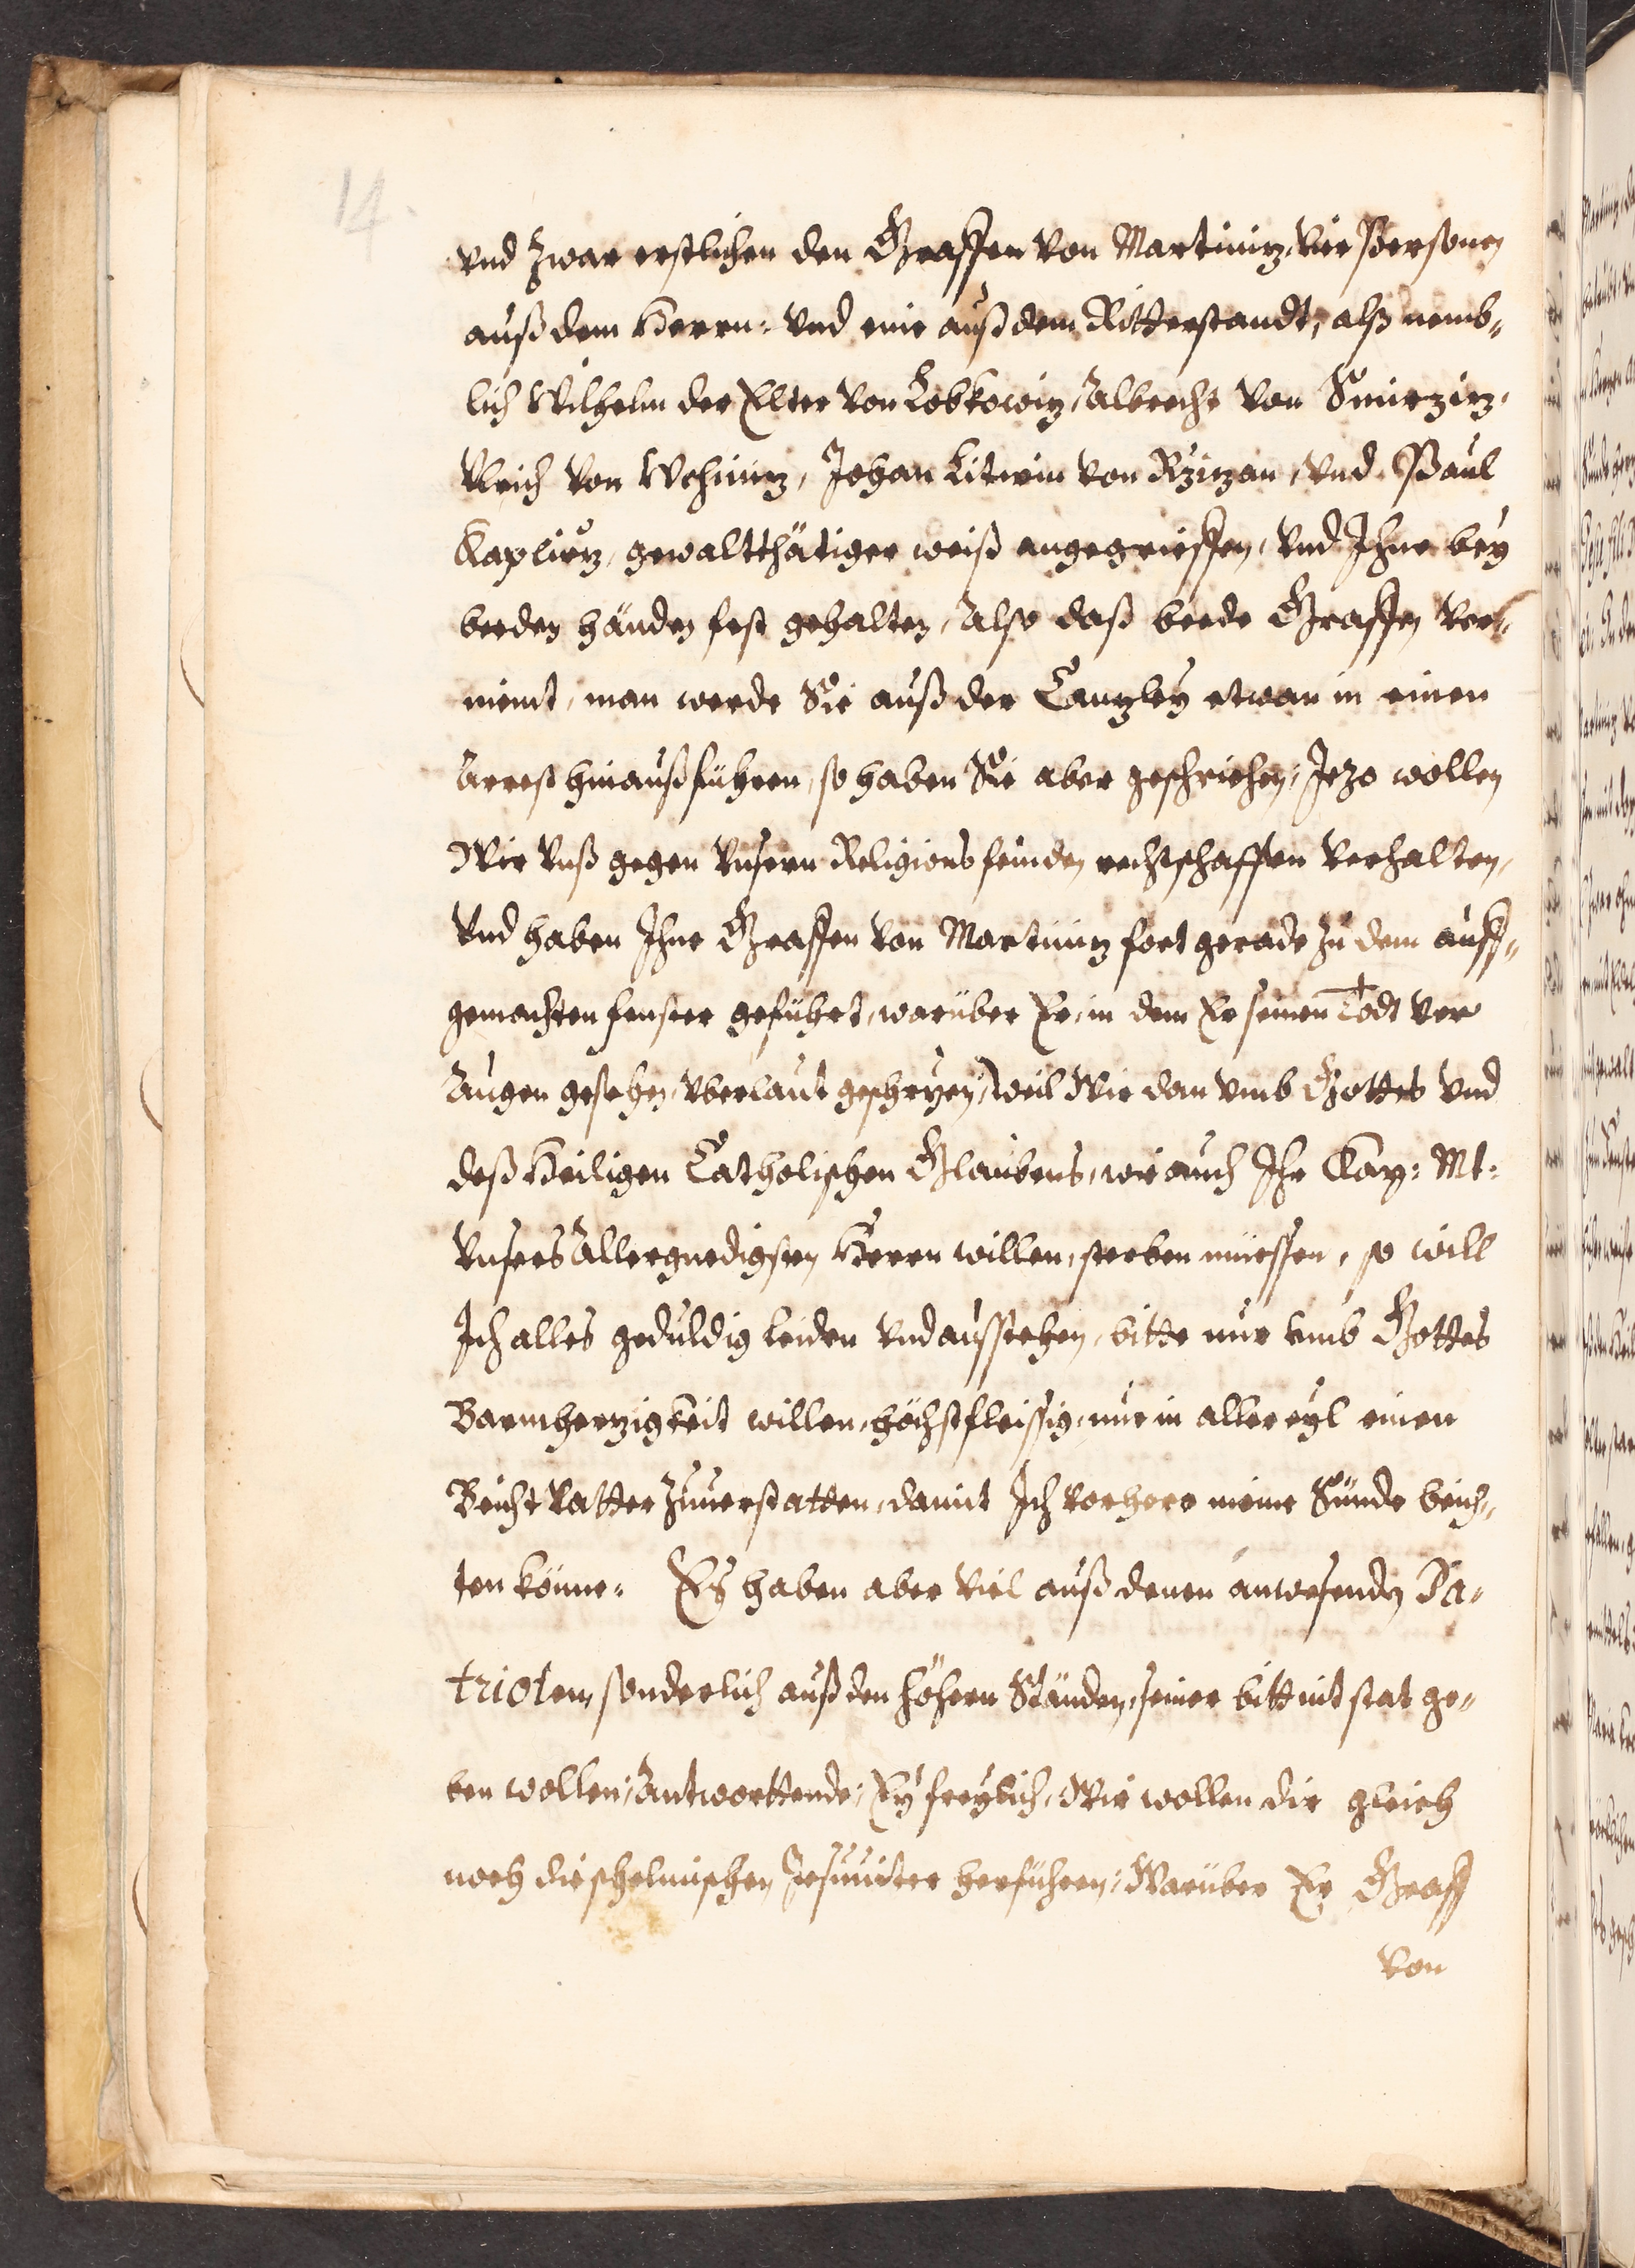 14.
vnd Zwar erstlichen den Graffen von Martinitz, vier Personen
auß dem Herrn: vnd eine auß dem Ritterstandt, alß nemb„
lich Wilhelm der Elter von Lobkowitz, Albrecht von Smirzitz,
Vlrich von Wchinitz, Johan Litwin von Rzitzan, vnd Paul
Kaplirz, gewaltthätiger weiß angegrieffen, vnd Jhne bey
beeden händen fest gehalten, Also daß beede Graffen ver„
meint, man werde Sie auß der Cantzley etwan in einen
Arrest hinaußführen, so haben Sie aber geschriehen: Jezo wollen
Wir vnß gegen vnsern Religionsfeinden rechtschaffen verhalten,
vnd haben Jhne Graffen von Martinitz fort gerade zu dem auff„
gemachten fenster geführt, warüber Er, in dem Er seinen Todt vor
Augen gesehen, vberlaut geschryen, Weil Wir dan vmb Gottes vnd
deß Heiligen Catholischen Glaubens, wie auch Jhr Kay: Mt:
vnsers Allergnedigsten Herrn willen, sterben müessen, so will
Jch alles geduldig leiden vnd ausstehen, bitte nur vmb Gottes
Barmherzigkeit willen, höchstfleissig, mir in aller eyl einen
Beicht Vatter Zuuerstatten, damit Jch vorhero meine Sünde beich„
ten könne. Es haben aber viel auß denen anwesenden Pa„
trioten, sonderlich auß den höhern Ständen, seiner bitt nit stat ge„
ben wollen, Antworttende; Ey freylich, Wir wollen dir gleich
noch die schelmischen Jesuuiter herführen; Warüber Er Graff
von